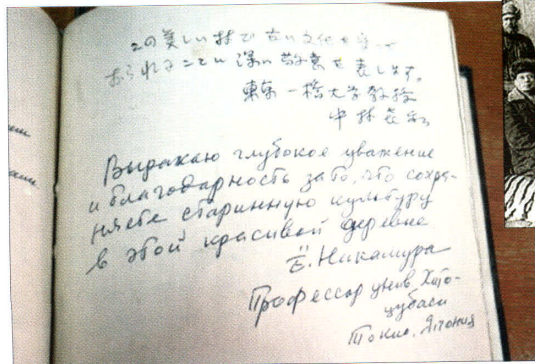 この美しい村で古い文化を守って
おられることに深い敬意を表します。
東京 一橋大学教授
中村喜和
Выражаю глубокое уважение
и благодарность за то, что сохра-
няете старинную культуру
в этой красивой деревне
Ё. Накамура
Профессор унив. Хито-
цубаси
Токио, Япония